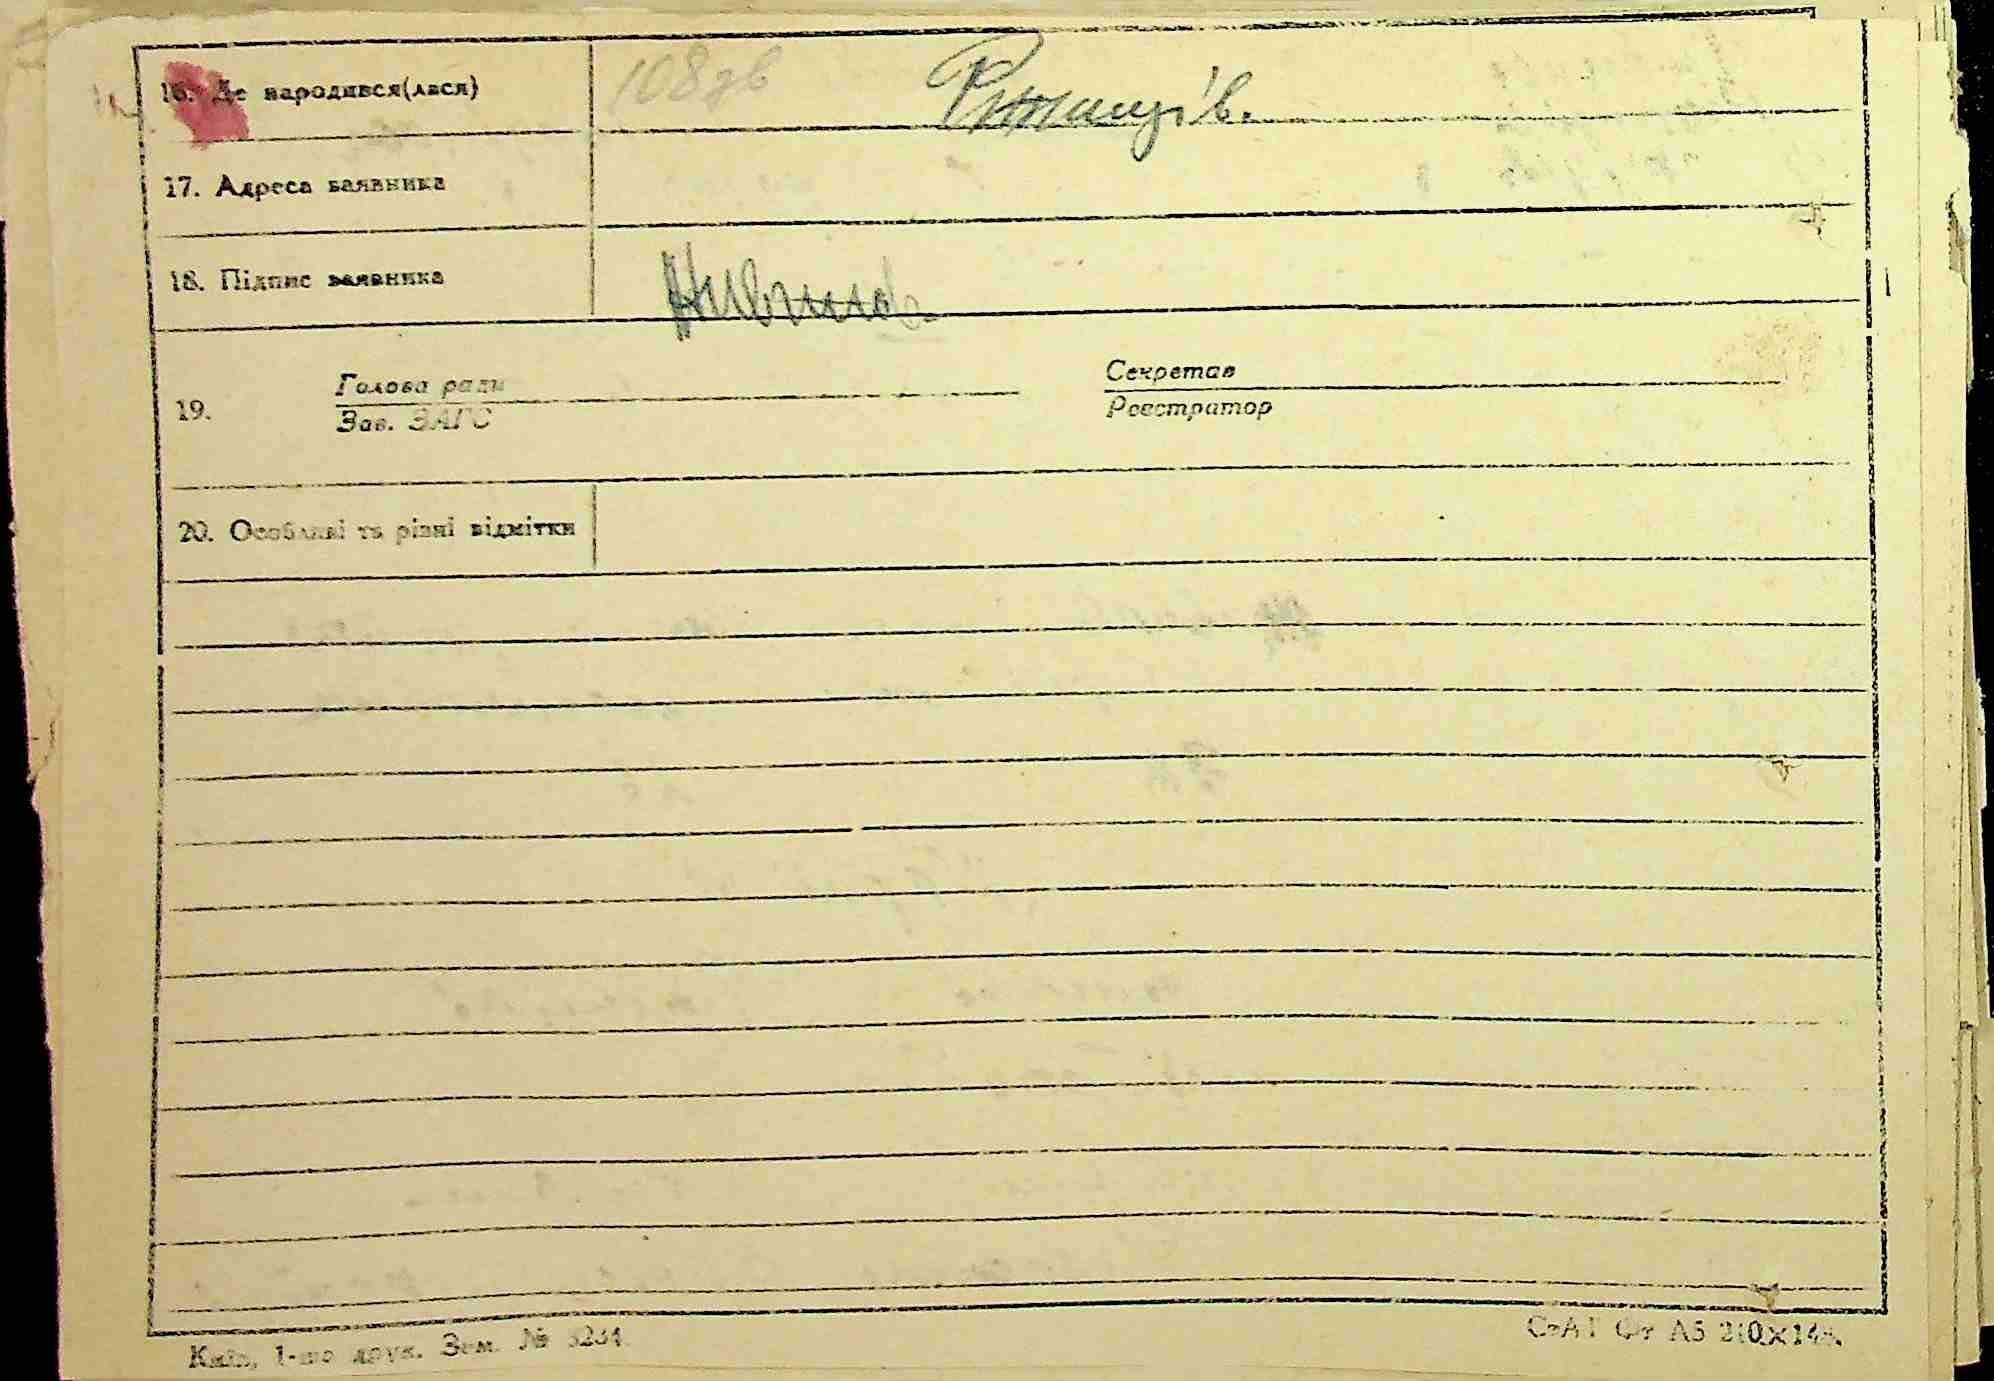 16. Де народився(лася) 108зв Ржищів.
17. Адреса заявника
18. Підпис заявника
Голова ради Секретар
19. Зав. ЗАГС Реєстратор
20. Особливі та різні відмітки
Київ, 1-ша друк. Зам. № 5234 СтАТ Фт А5 210×148.